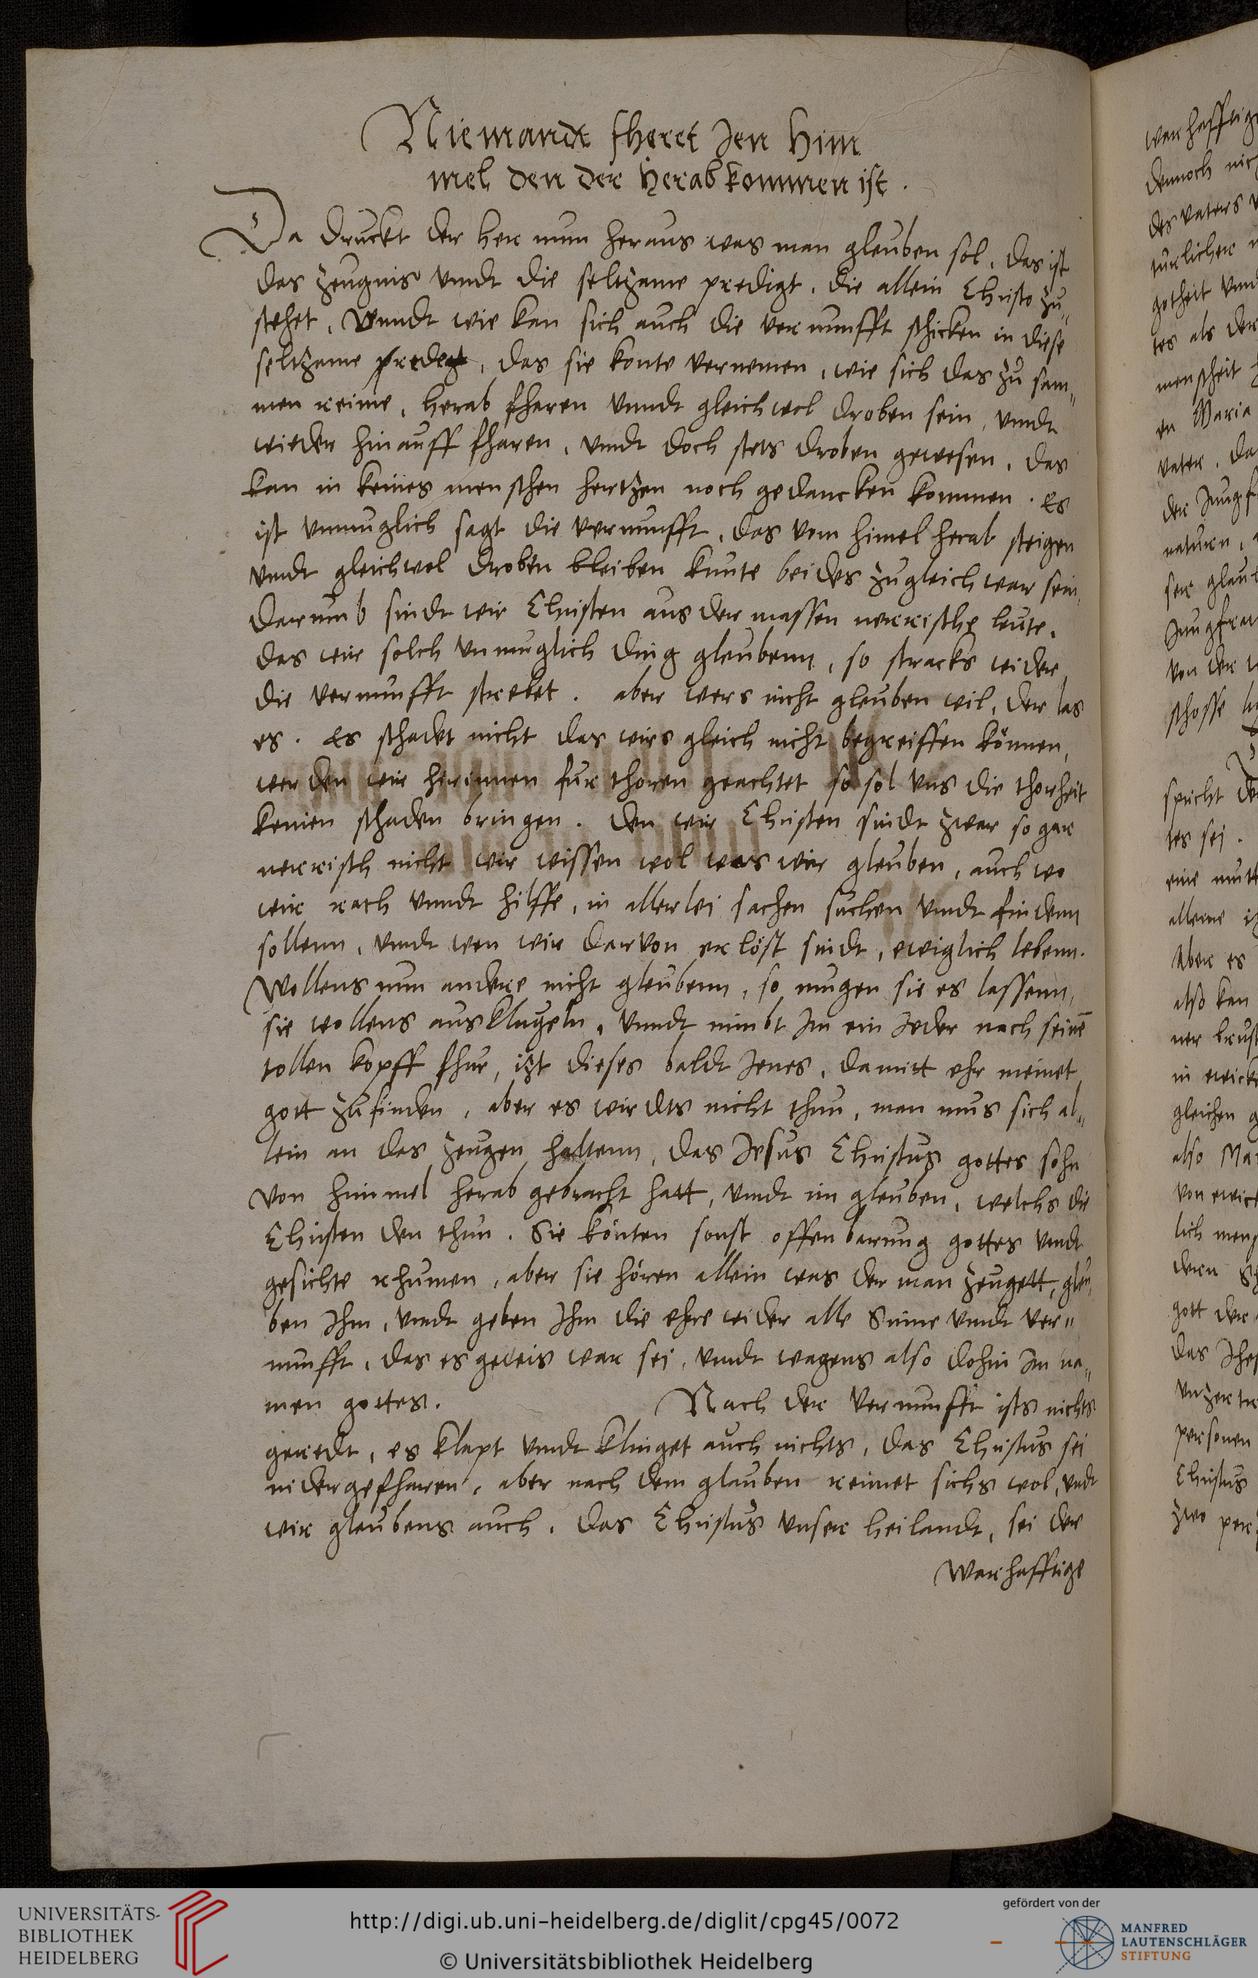 Niemandt fheret Jen Him
mel den der Herab kommen ist .
Da druckt der her nun heraus was man gleuben sol, das ist
das zeugnis vnndt die seltzame predigt, die allein Christo zu„
stehet, Vnndt wie kan sich auch die vernunfft schicken in diese
seltzame predigt, das sie konte vernemen, wie sich das zu sam„
men reime, herab fharen vnndt gleichwol droben sein, vnndt
wieder hinauff fharen, vnndt doch stets droben gewesen, das
kan in keines menschen hertzen noch gedancken kommen . Es
ist vnmuglich sagt die vernunfft, das vom himel herab steigen
vnndt gleichwol droben bleiben kunte beides zugleich war sein,
Darumb sindt wir Christen aus der massen nerrische leute,
das wir solch vnmuglich ding gleubenn, so stracks wider
die vernunfft strebet . aber wers nicht gleuben wil, der las
es . Es schadet nicht das wirs gleich nicht begreiffen können,
werden wir hirinnen fur thoren geachtet so sol vns die thorheit
keinen schaden bringen . den wir Christen sindt zwar so gar
nerrisch nicht wir wissen wol was wir gleuben, auch wo
wir rath vnndt hilffe, in allerlei sachen suchen vnndt findenn
sollenn, vnndt wen wir darvon erlöst sindt, ewiglich lebenn.
Wollens nun andere nicht gleubenn, so mugen sie es lassenn,
sie wollens ausklugeln, vnndt nimbt Im ein Jeder nach seinē
tollen kopff fhur, itzt dieses baldt Jenes, damitt ehr meinet
gott zufinden, aber es wirdts nicht thun, man mus sich al„
lein an das zeugen haltenn, das Jesus Christus gottes sohn
von himmel herab gebracht hatt, vnndt im gleuben, welchs die
Christen den thun . Sie könten sonst offenbarung gottes vnndt
gesichte rhumen, aber sie hören allein was der man zeugett, gleu„
ben Ihm, vnndt geben Ihm die ehre wider alle Sinne vnndt ver„
nunfft, das es gewis war sei, vnndt wagens also dohin Im na„
men gottes. Nach der vernunfft ists nichts
geredt, es klapt vnndt klinget auch nichts, das Christus sei
nidergefharen, aber nach dem glauben reimet sichs wol, vndt
wir gleubens auch, das Christus vnser heilandt, sei der
Warhafftige
warhafftige
dennoch nich
des vaters v
turlicher
gotheit vnn
tes als der
menscheit
en Maria
vater, Da
der Jungf
naturn,
ser glau
Jungfrau
von der
schosse
spricht
tes sei .
eine mutt
alleine
Aber es
also kan
ner brust
in ewick
gleichen
also Mar
von ewick
lich mens
dern
gott der
das Jhes
vnzertr
personen
Christus
zwo per
UNIVERSITÄTS-
BIBLIOTHEK
HEIDELBERG
http://digi.ub.uni-heidelberg.de/diglit/cpg45/0072
© Universitätsbibliothek Heidelberg
gefördert von der
MANFRED
LAUTENSCHLÄGER
STIFTUNG